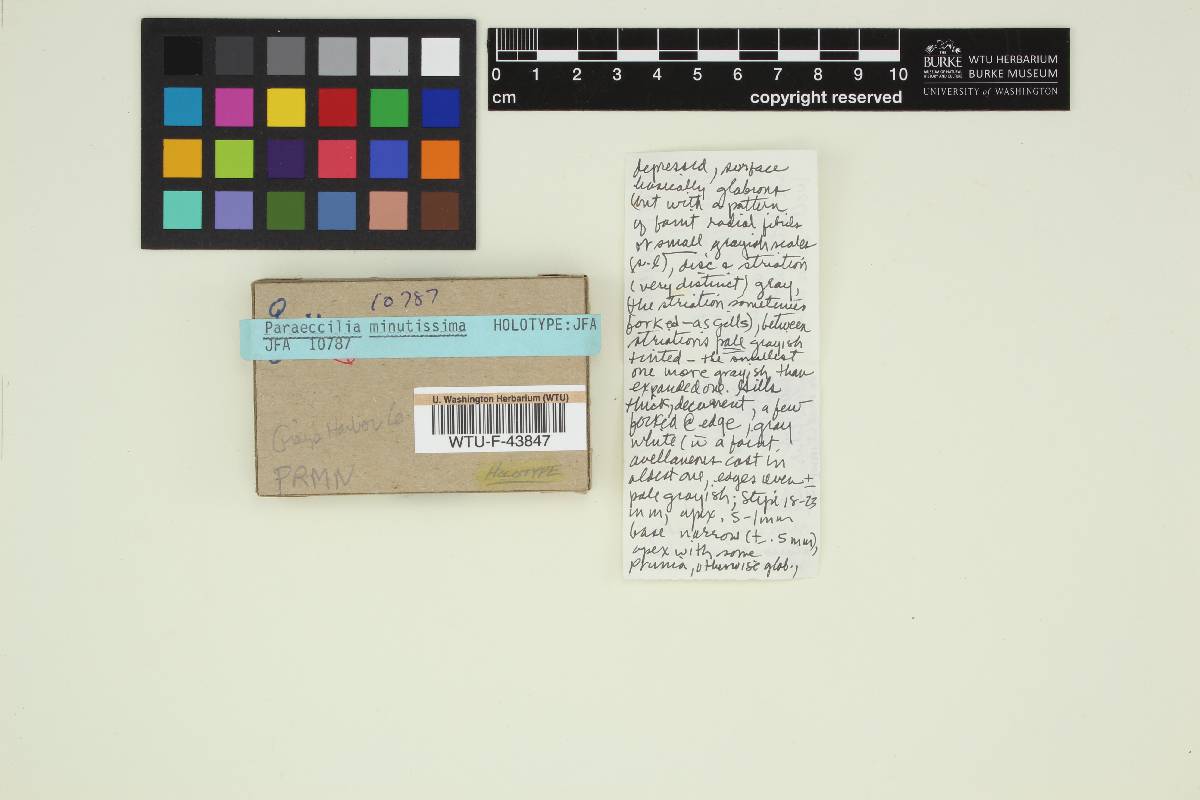 0 1 2 3 4 5 6 7 8 9 10
cm
copyright reserved
THE
BURKE
MUSEUM OF NATURAL
HISTORY AND CULTURE
WTU HERBARIUM
BURKE MUSEUM
UNIVERSITY of WASHINGTON
10787
Paraeccilia minutissima HOLOTYPE:JFA
JFA 10787
U. Washington Herbarium (WTU)
WTU-F-43847
Grays Harbor Co.
PRMN
HOLOTYPE
depressed, surface
basically glabrous
but with a pattern
of faint radial fibrils
or small grayish scales
(s.l), disc & striation
(very distinct) gray,
the striation sometimes
forked-as gills), between
striations pale grayish
tinted - the smallest
one more grayish than
expanded one. Gills
thick, decurrent, a few
forked @ edge, gray
white (w a faint
avellaneous cast in
oldest one, edges even ±
pale grayish; Stipe 18-23
mm, apex .5-1mm
base narrow (± .5mm),
apex with some
pruina, otherwise glab.,